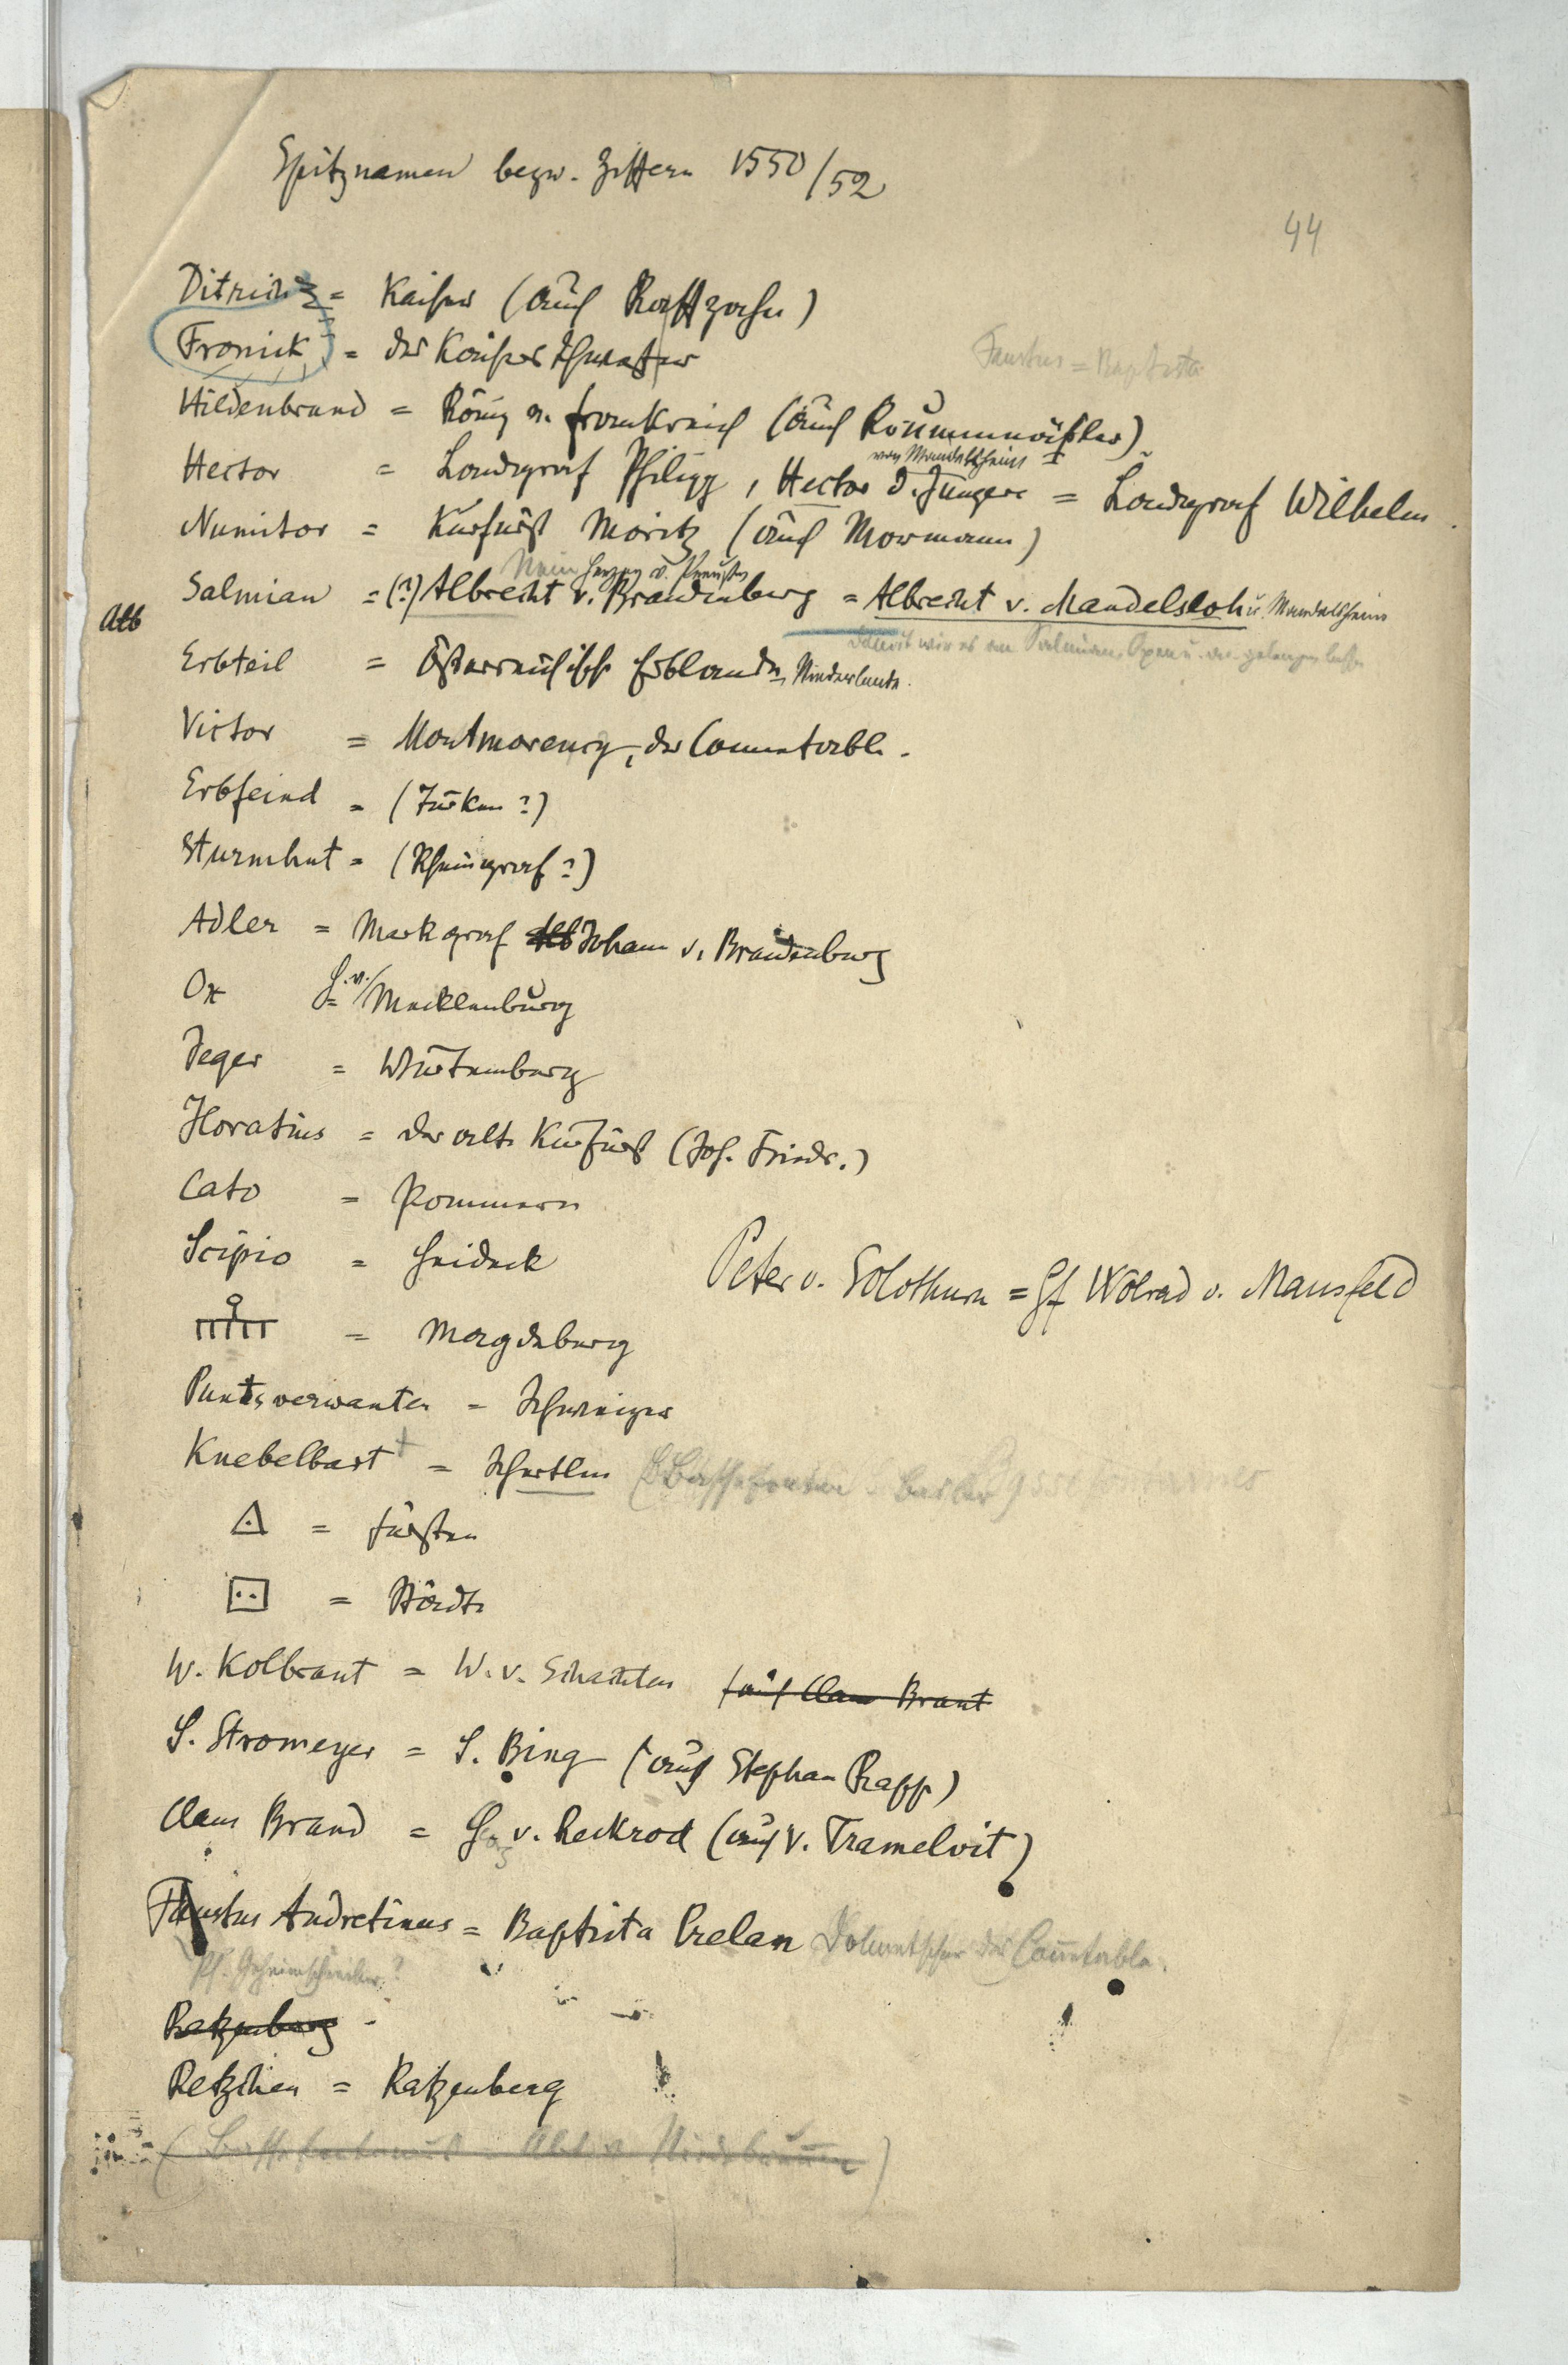 Spitznamen bezw. Ziffern 1550/52
44
Ditrich = Kaiser (auch Raffzahn)
Fronick = des Kaisers Schwester
Faustus = Baptista
Hildenbrand = König v. Frankreich (auch
von Mandelsheim
Hector = Landgraf Philipp, Hector d. Jüngere = Landgraf Wilhelm
Numitor = Kurfürst Moritz (auch Mormann)
Nein Herzog v. Preußen
Salmian = (?) Albrecht v. Brandenburg = Albrecht v. Mandelsloh u. Mandelsheim
Alb
Erbteil = Österreichische Erblande, Niederlande.
Victor = Montmorency, der Connetable.
Erbfeind = (Türken?)
Sturmhut = (Rheingraf?)
Adler = Markgraf Alb Johann v. Brandenburg
Ox = H. v. Mecklenburg
Jeger = Würtemberg
Horatius = der alte Kurfürst (Joh. Friedr.)
Cato = Pommern
Scipio = Heideck
Peter v. Solothurn = Gf Wolrad v. Mansfeld
= Magdeburg
Puntsverwanten = Schweizer
Knebelbart = Schertlin
= Fürsten
= Städte
W. Kolbrant = W. v. Schachten (auch Claus Brant
S. Stromeyer = S. Bing (auch Stephan Rapp)
Claus Brand = Gg v. Reckrod (auch V. Tramelvit)
Faustus Andrelinus = Baptista Prelan Dolmetscher des Connetable.
Pf. Geheimschreiber?
Ratzenberg -
Retzchen = Ratzenberg